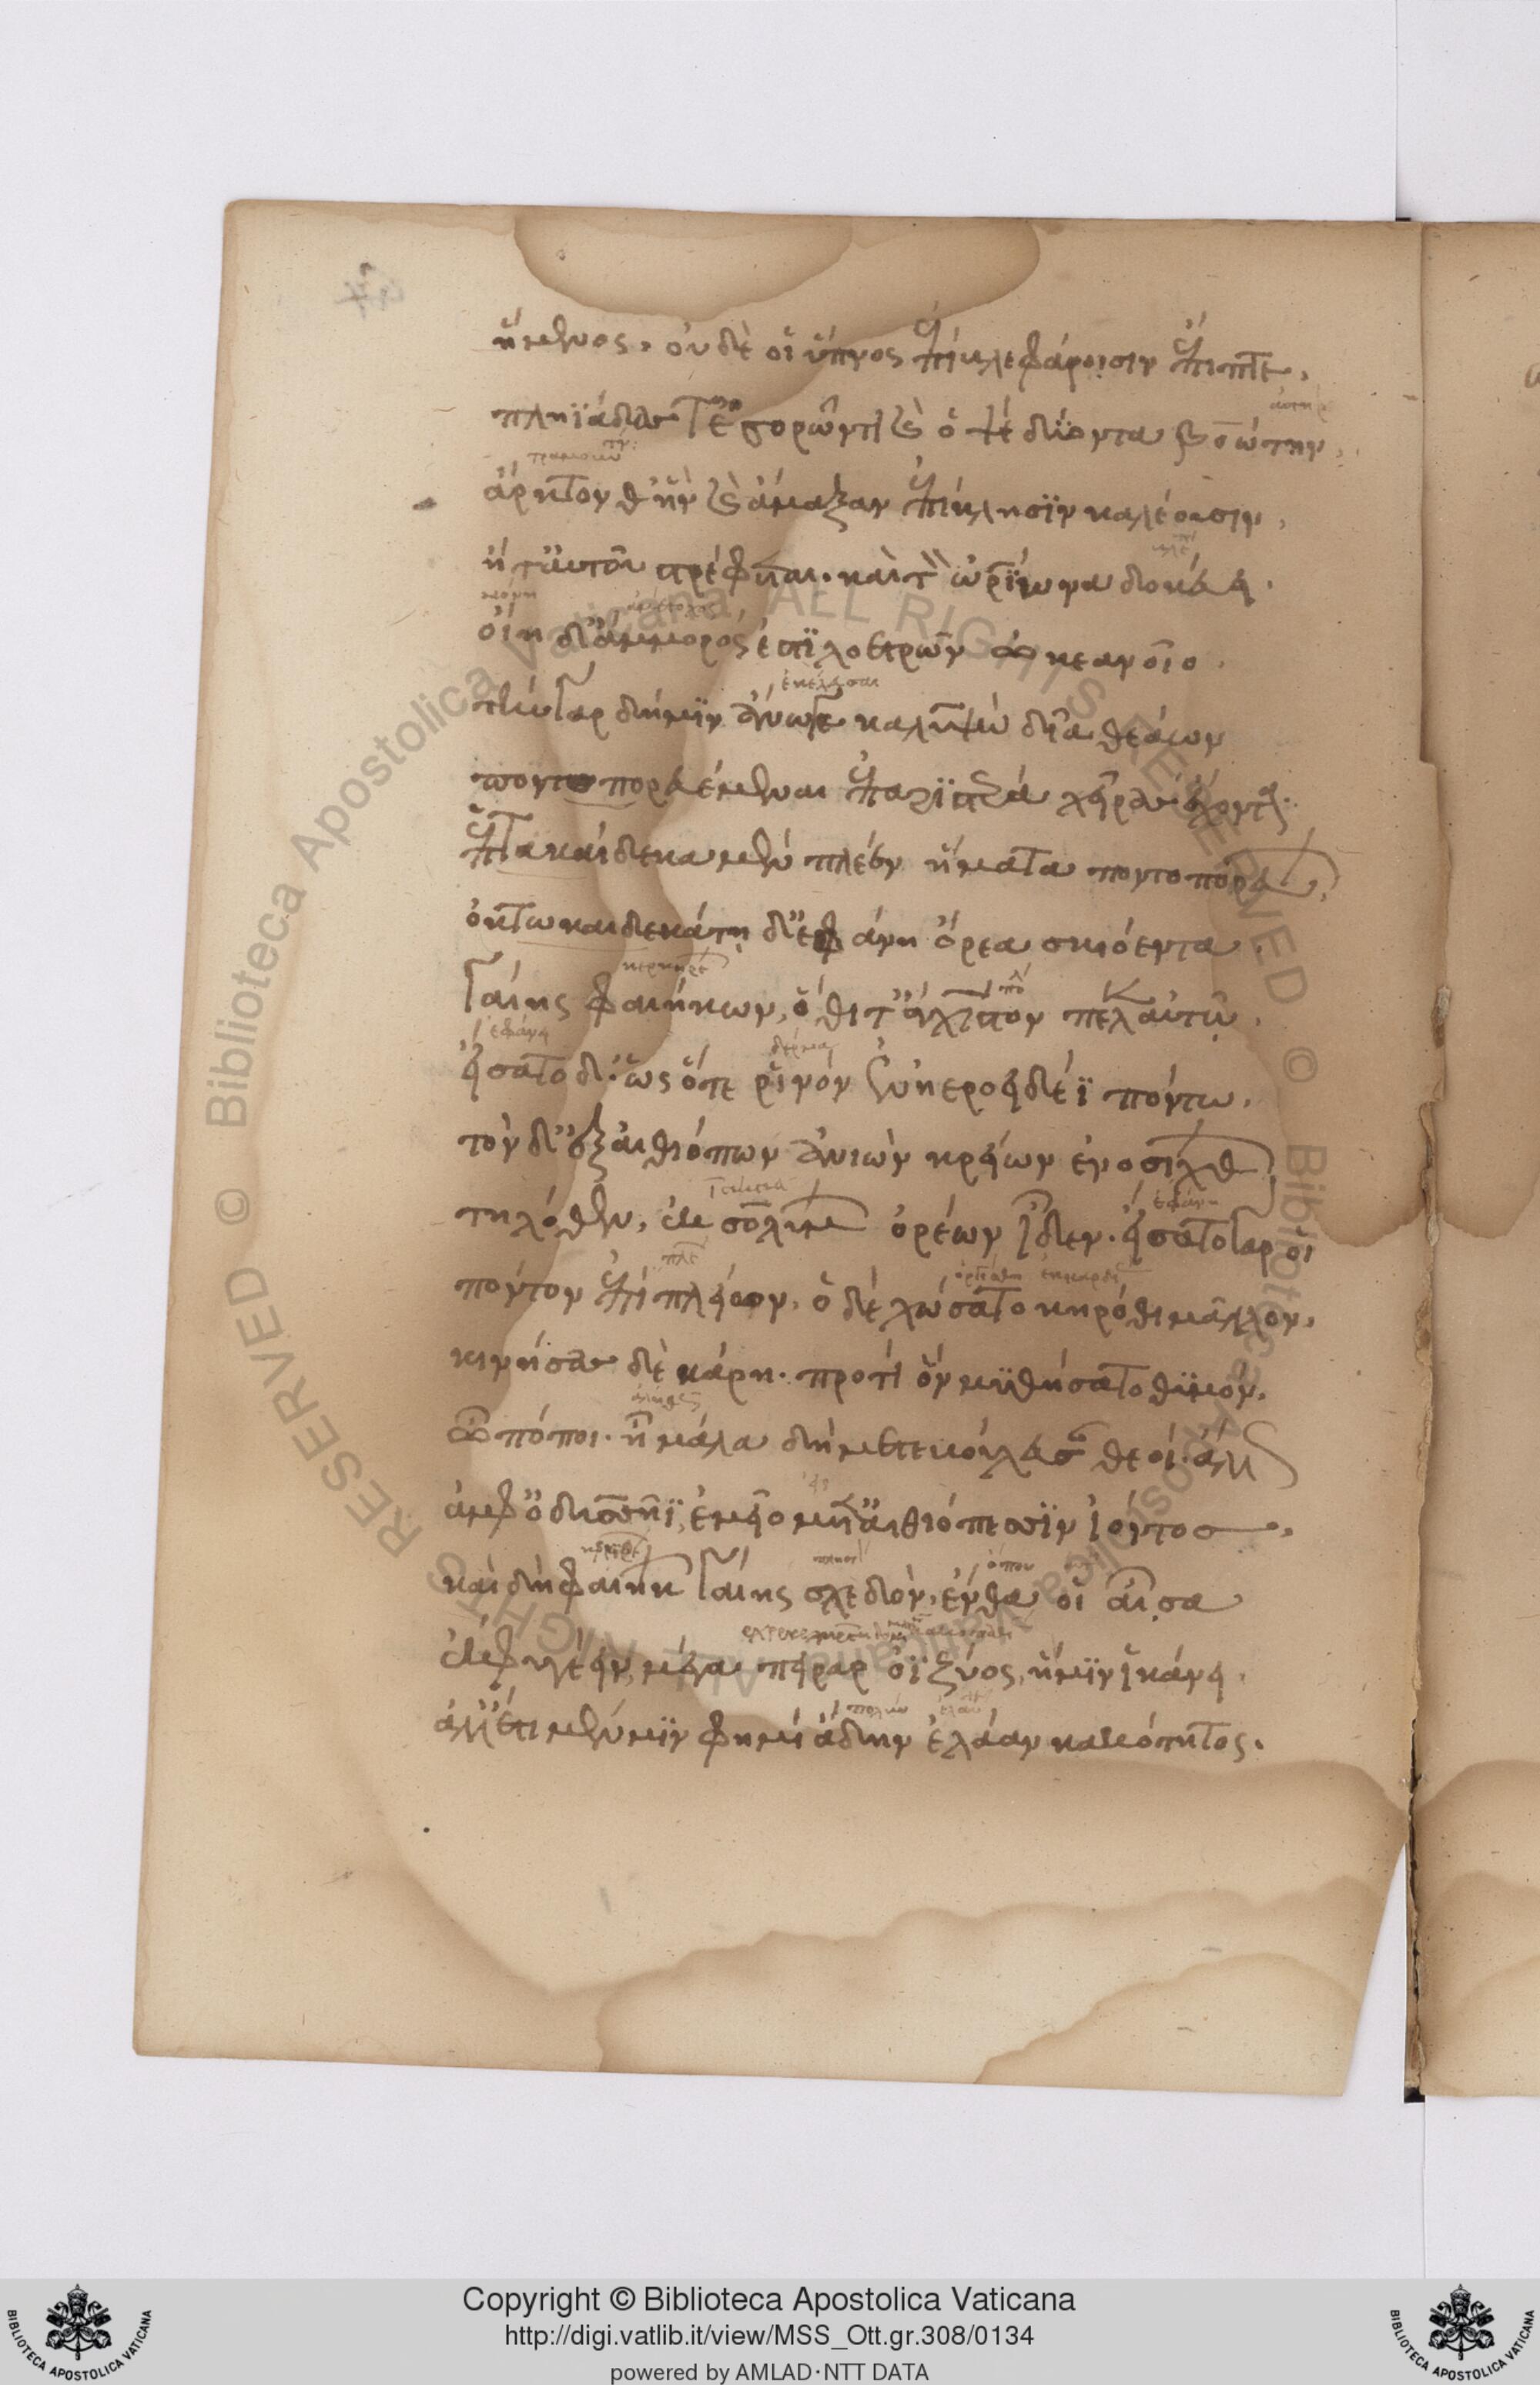 ἥμενος. οὐδὲ οἱ ὕπνος ἐπὶ βλεφάροισιν ἔπιπτε,
πληϊάδας τ' ἐσορῶντι καὶ ὀψὲ δύοντα βοώτην,
ἄρκτον θ' ἣν καὶ ἅμαξαν ἐπίκλησιν καλέουσιν,
ἥ τ' αὐτοῦ στρέφεται. καί τ' ὠρίωνα δοκεύει.
οἴη δ' ἄμμορός ἐστι λοετρῶν ὠκεανοῖο.
τὴν γὰρ δή μιν ἄνωγε καλυψὼ δῖα θεάων
ποντοπορευέμεναι ἐπ' ἀριστερὰ χειρὸς ἔχοντα.
ἑπτὰ καίδεκα μὲν πλέεν ἤματα ποντοπορεύων,
ὀκτωκαιδεκάτῃ δ' ἐφάνη ὄρεα σκιόεντα.
γαίης φαιήκων, ὅθι τ' ἄγχιστον πέλεν αὐτῷ.
εἴσατο δ' ὡς ὅτε ῥινὸν ἐν ἠεροειδέϊ πόντῳ.
τὸν δ' ἐξ αἰθιόπων ἀνιὼν κρείων ἐνοσίχθων
τηλόθεν, ἐκ σολύμων ὀρέων ἴδεν. εἴσατο γάρ οἱ
πόντον ἐπιπλείων. ὁ δὲ χώσατο κηρόθι μᾶλλον,
κινήσας δὲ κάρη. προτὶ ὃν μυθήσατο θυμόν.
ὢ πόποι. ἦ μάλα δὴ μετεβούλευσαν θεοὶ ἄλλως
ἀμφ' ὀδυσσῆϊ, ἐμεῖο μετ' αἰθιόπεσσιν ἰόντος,
καὶ δὴ φαιήκων γαίης σχεδόν, ἔνθα οἱ αἶσα
ἐκφυγέειν μέγα πεῖραρ ὀϊζύος, ἥ μιν ἱκάνει.
ἀλλ' ἔτι μέν μιν φημὶ ἄδην ἐλάαν κακότητος.
Copyright © Biblioteca Apostolica Vaticana
http://digi.vatlib.it/view/MSS_Ott.gr.308/0134
powered by AMLAD·NTT DATA